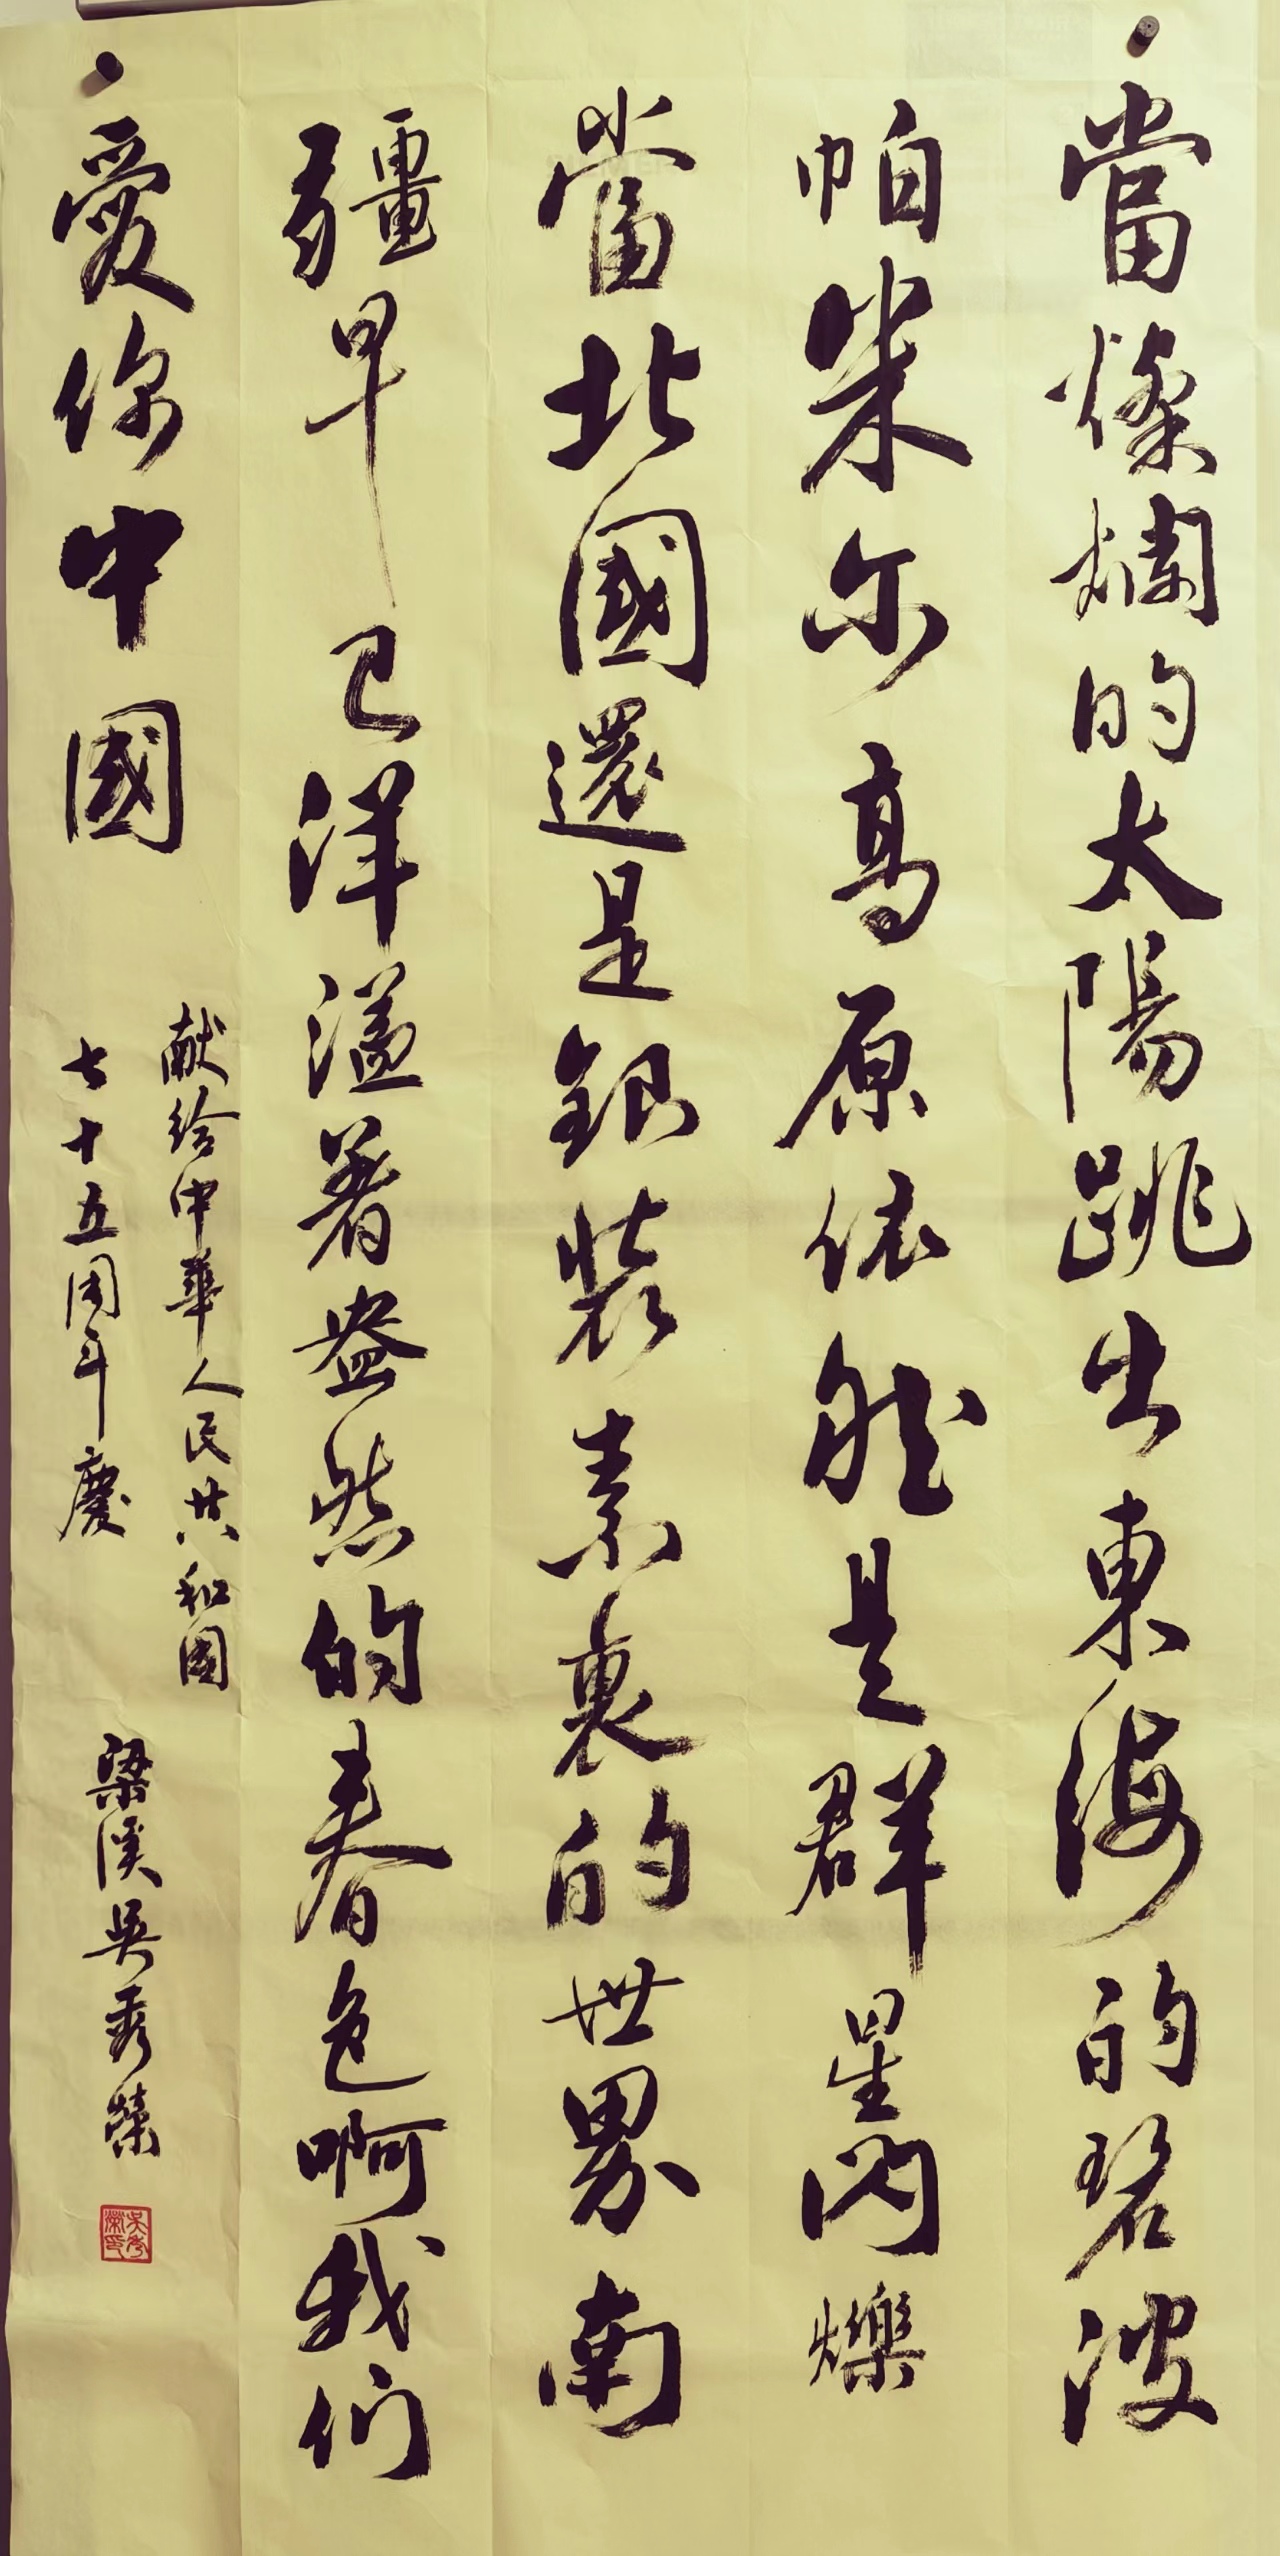 當燦爛的太陽跳出東海的碧波
帕米尔高原依然是群星閃爍
當北國還是銀裝素裹的世界南
疆早已洋溢着盎然的春色啊我们
愛你中國
献给中華人民共和国
七十五周年慶
梁溪吴秀榮
吴秀
榮印